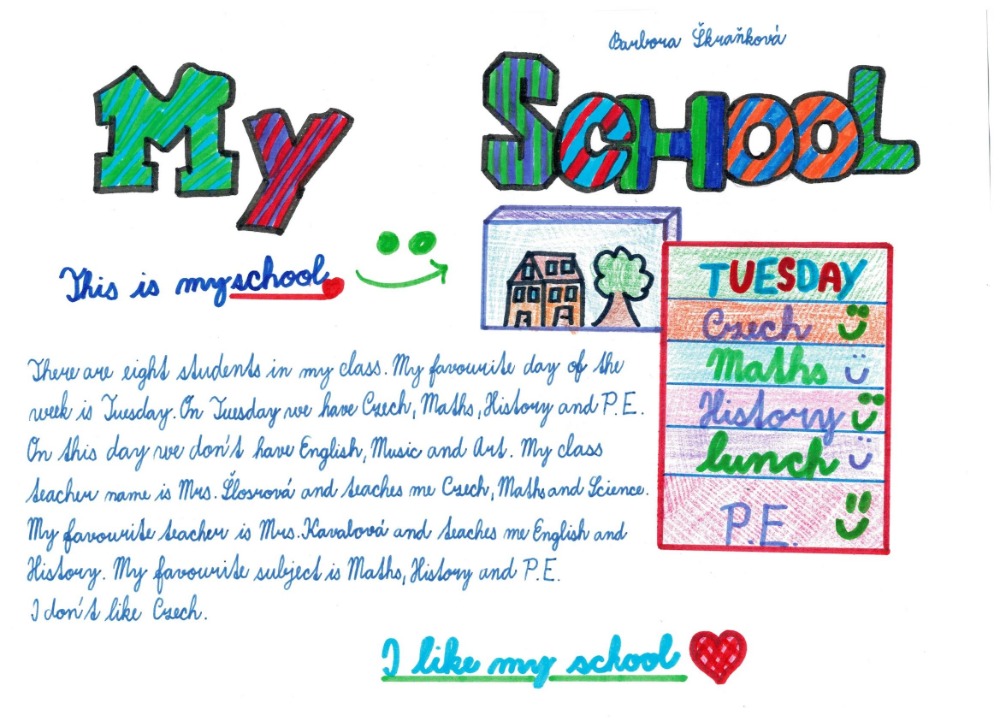 Barbora Škraňková
My SCHOOL
This is my school
TUESDAY
Czech
Maths
History
lunch
P.E.
There are eight students in my class. My favourite day of the
week is Tuesday. On Tuesday we have Czech, Maths, History and P.E.
On this day we don't have English, Music and Art. My class
teacher name is Mrs. Šlosrová and teaches me Czech, Maths and Science.
My favourite teacher is Mrs. Kavalová and teaches me English and
History. My favourite subject is Maths, History and P.E.
I don't like Czech.
I like my school